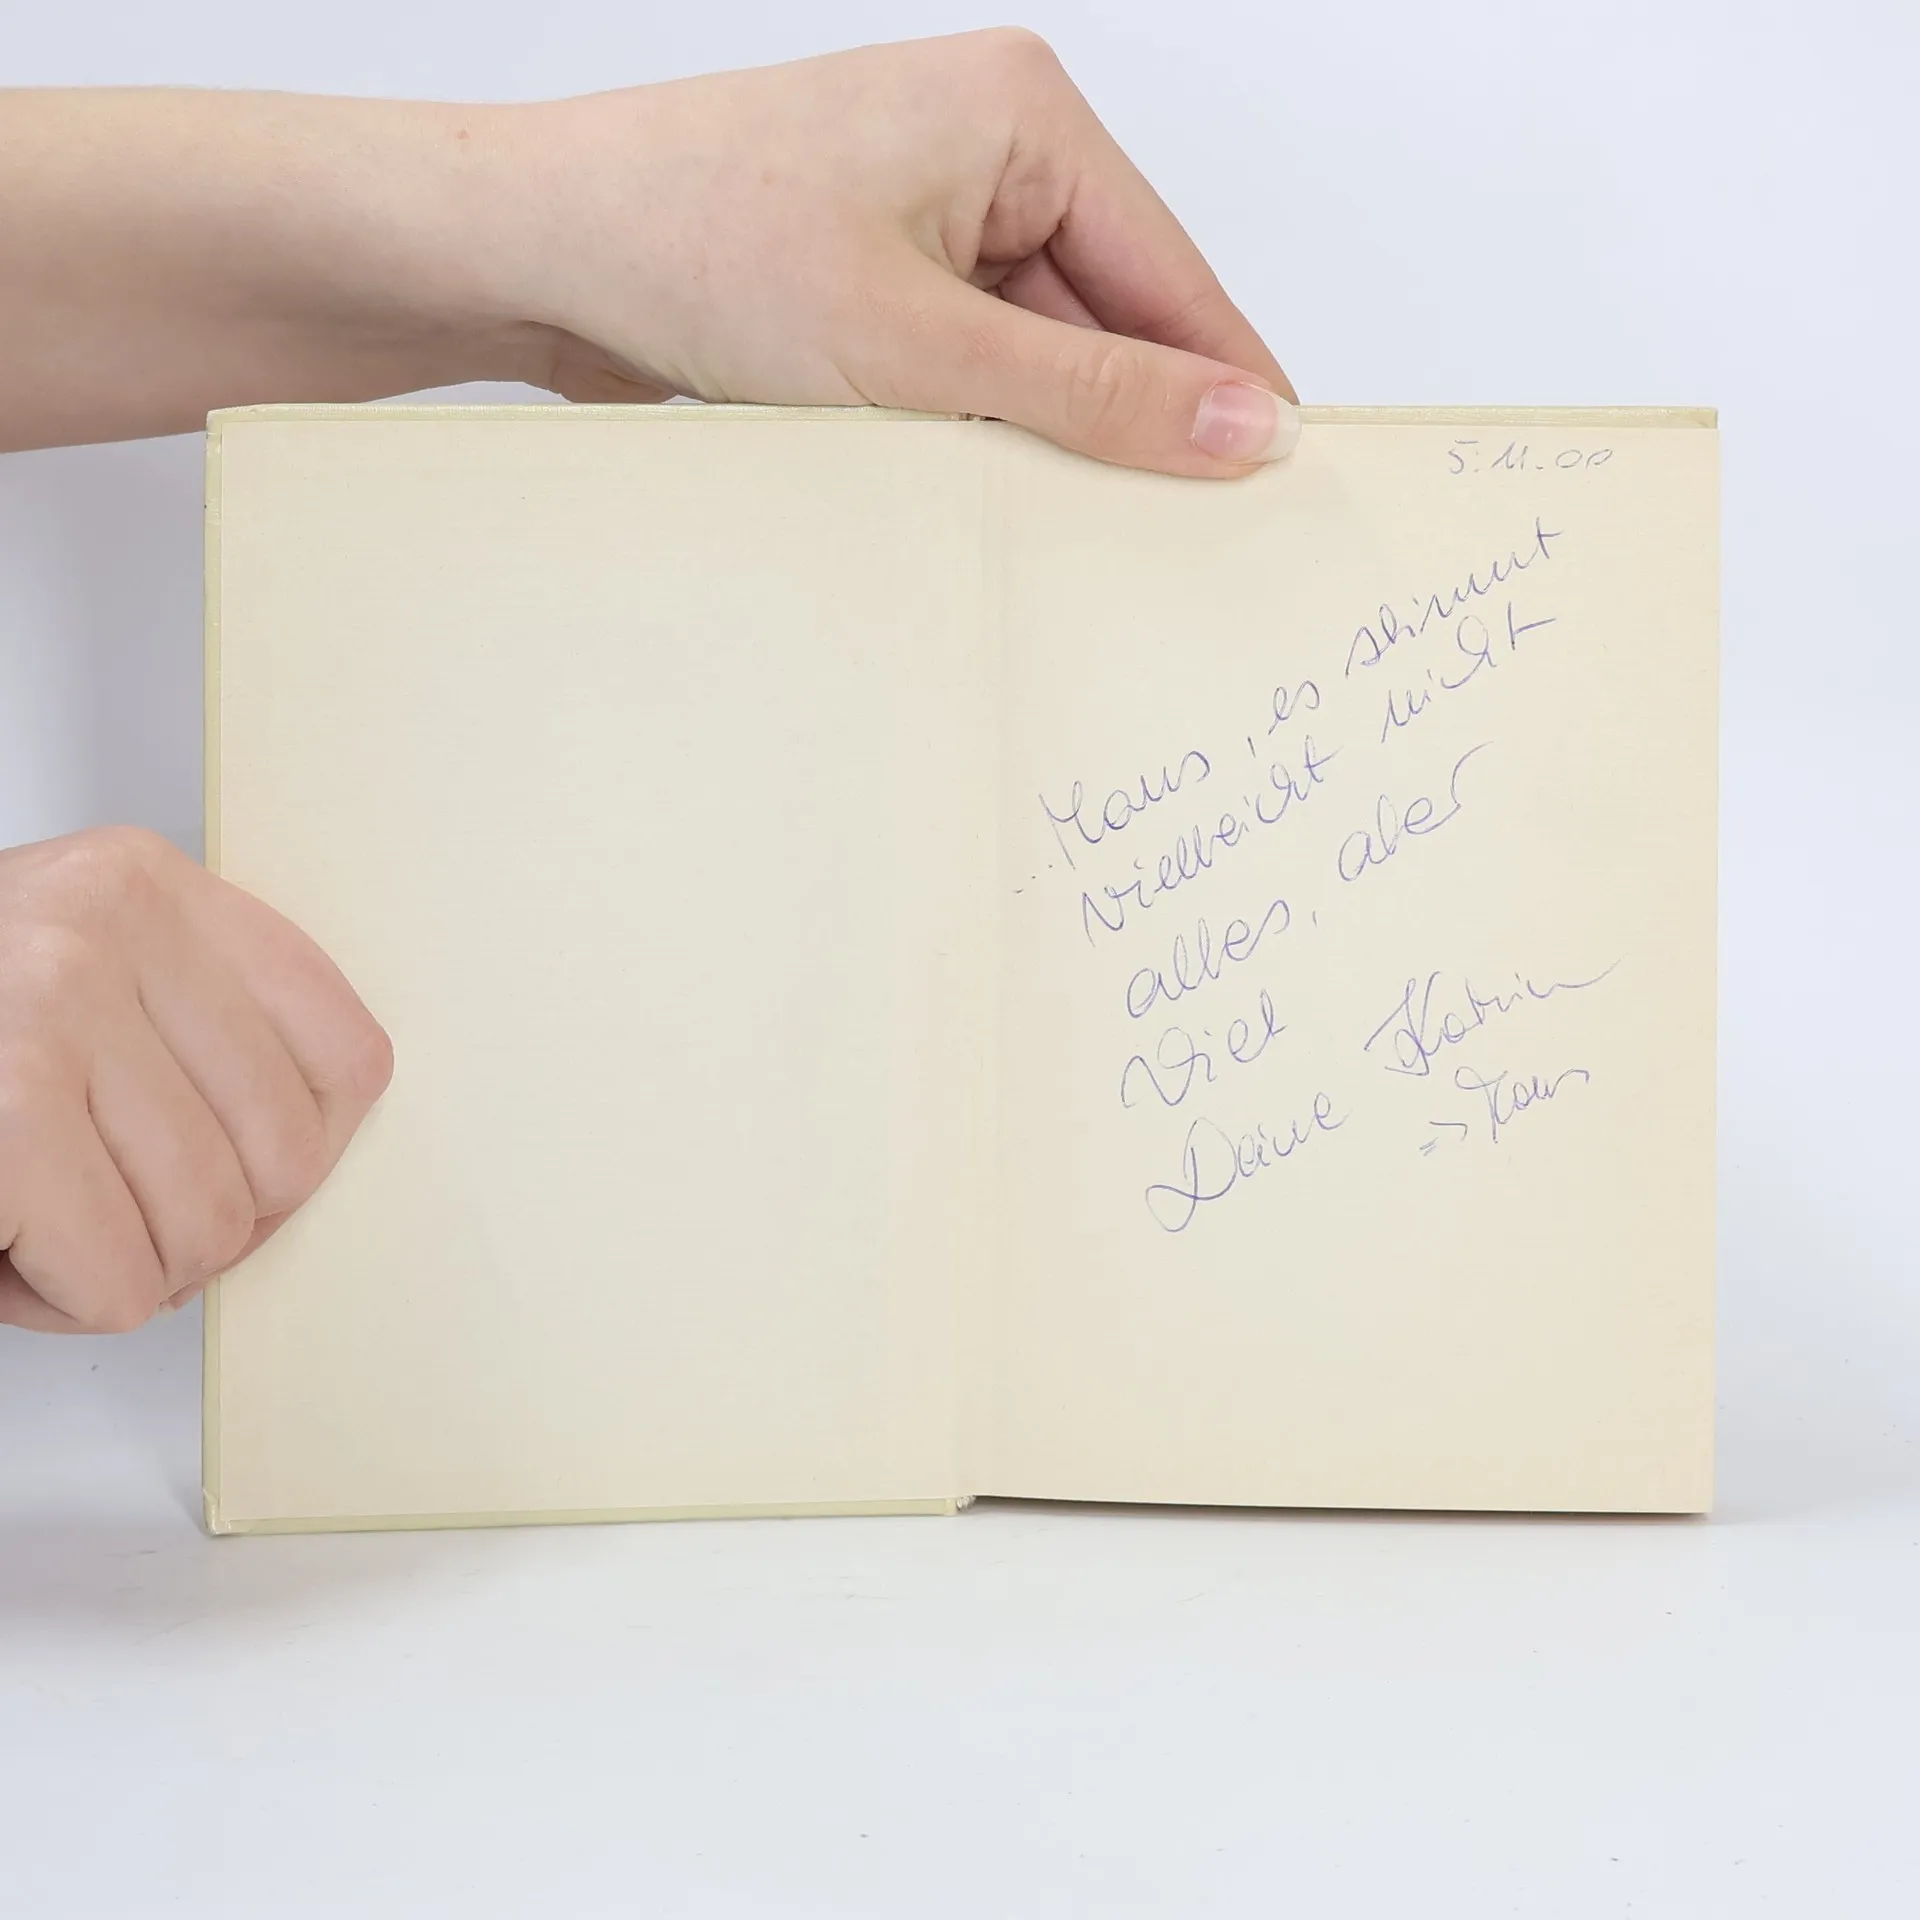 5.11.00
Maus, es stimmt
vielleicht nicht
alles, aber
viel
Deine Katrin
=> Maus